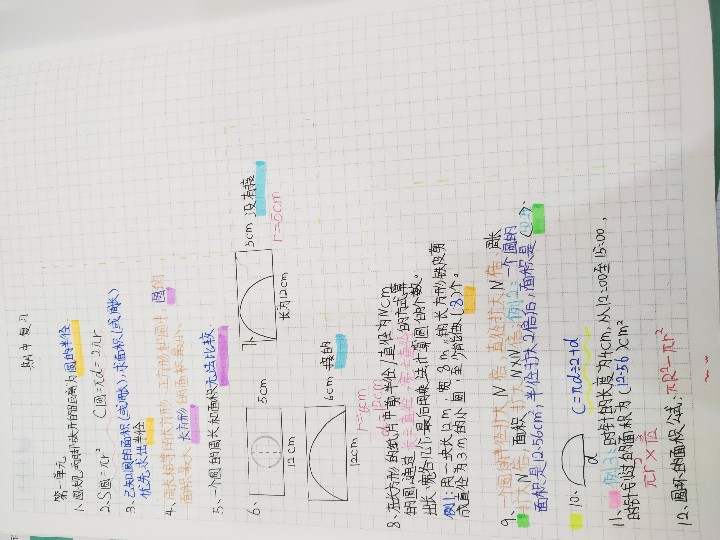 期中复习
第一单元
1、圆规两脚张开的距离为圆的半径.
2、S圆=πr² C圆=πd=2πr
3、已知圆的面积(或周长),求面积(或周长)
优先求出半径
4、周长相等的长方形、正方形和圆中,圆的
面积最大,长方形的面积最小.
5、一个圆的周长和面积无法比较.
6、
5cm
12cm
6cm 接的
12cm
r=6cm
7、
5cm 没有接
长为12cm
r=5cm
8、在长方形的纸片中剪半径/直径为Ncm
的圆,通过长÷直径,宽÷直径的方式算
出长、宽各几个,最后用乘法计算圆的个数。
例1:用一块长12m,宽8m的长方形铁皮剪
成直径为3m的小圆,至多能做(8)个。
9、一个圆的半径扩大N倍,直径扩大N倍,周长
扩大N倍,面积扩大N×N倍.例2:一个圆的
面积是12.56cm²,半径扩大2倍后,面积是( ).
10、
d
C=πd÷2+d
11、例3:的针的长度为4cm,从12:00至15:00,
的针划过的面积为(12.56)cm²
12、圆环的面积公式:πR²-πr²